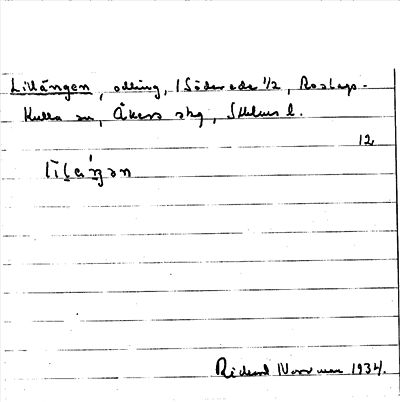 Lillängen, odling, i Söderede 1/2, Roslags-
Kulla sn, Åkers skg, Sthlms l.
12
Rickard Norrman 1934.